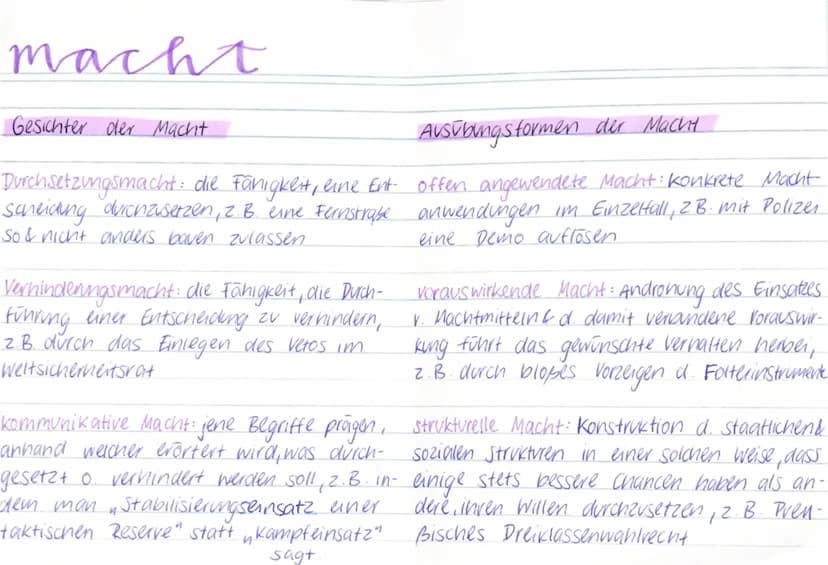 macht
Gesichter der Macht
Durchsetzungsmacht: die Fähigkeit, eine Ent-
scheidung durchzusetzen, z.B. eine Fernstraße
so & nicht anders bauen zulassen
Verhinderungsmacht: die Fähigkeit, die Durch-
führung einer Entscheidung zu verhindern,
z.B. durch das Einlegen des Vetos im
Weltsicherheitsrat
kommunikative Macht: jene Begriffe prägen,
anhand welcher erörtert wird, was durch-
gesetzt o. verhindert werden soll, z.B. in-
dem man „Stabilisierungseinsatz einer
taktischen Reserve" statt „Kampfeinsatz"
sagt
Ausübungsformen der Macht
offen angewendete Macht: konkrete Macht
anwendungen im Einzelfall, z.B. mit Polizei
eine Demo auflösen
vorauswirkende Macht: Androhung des Einsatzes
v. Machtmitteln & d. damit verbundene Vorauswir-
kung führt das gewünschte Verhalten herbei,
z.B. durch bloßes Vorzeigen d. Folterinstrumente
strukturelle Macht: Konstruktion d. staatlichen &
sozialen Strukturen in einer solchen Weise, dass
einige stets bessere Chancen haben als an-
dere, ihren Willen durchzusetzen, z.B. Preu-
ßisches Dreiklassenwahlrecht